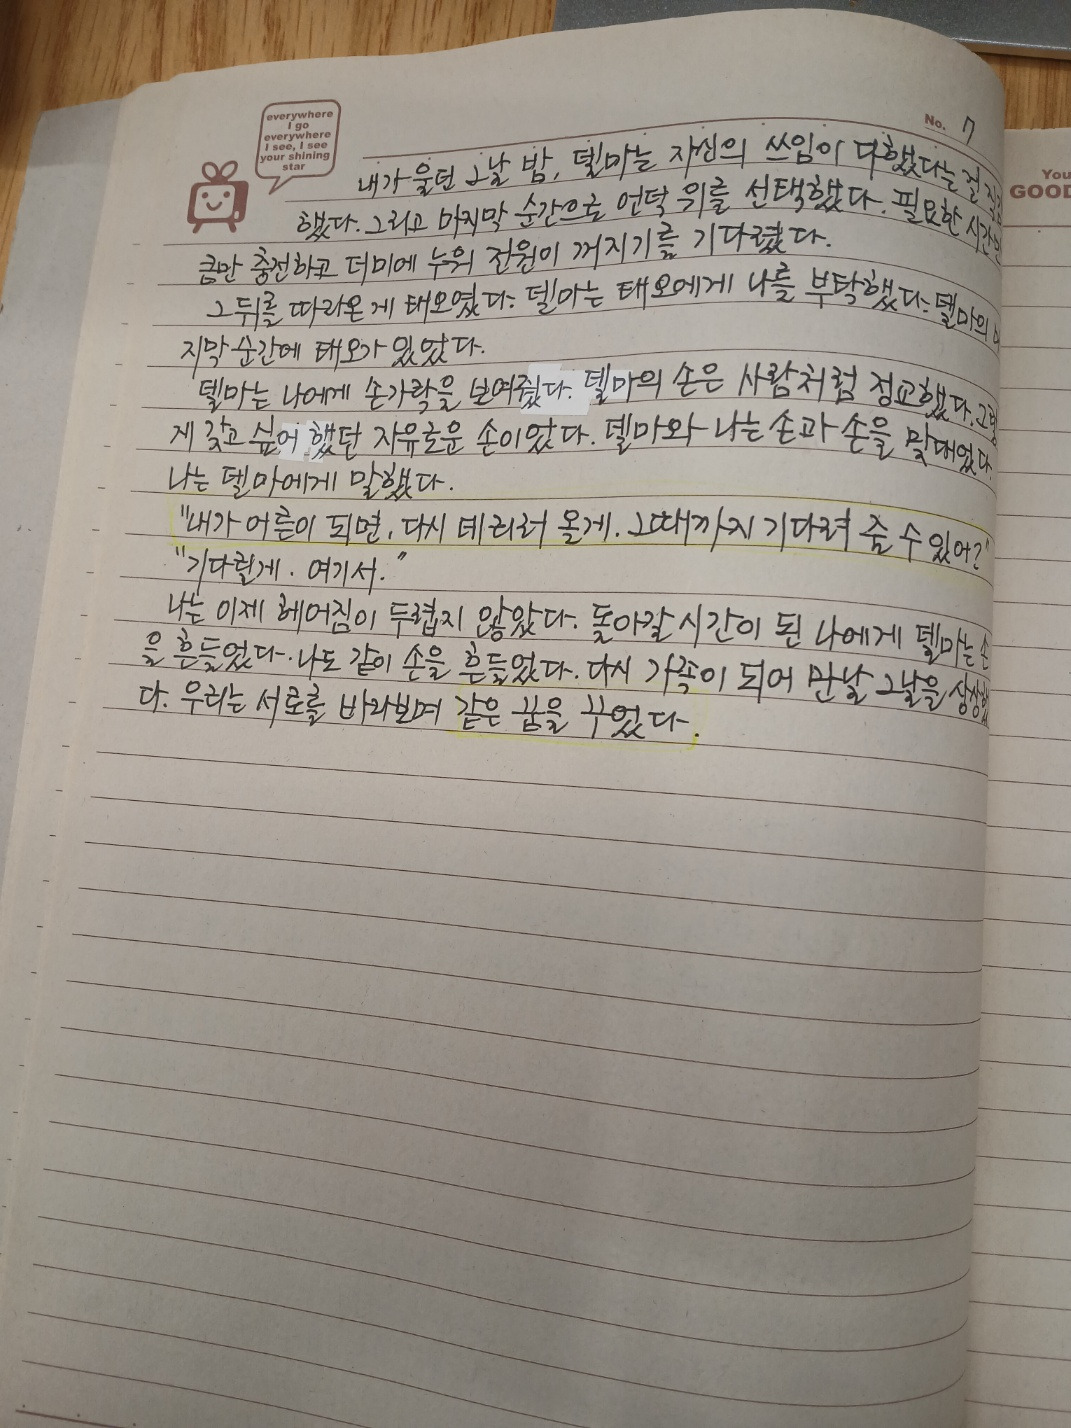 everywhere
I go
everywhere
I see, I see
your shining
star
No. 7
You
GOOD
내가 울던 그날 밤, 델마는 자신의 쓰임이 다했다는 걸 직감
했다. 그리고 마지막 순간으로 언덕 위를 선택했다. 필요한 시간만
큼만 충전하고 더미에 누워 전원이 꺼지기를 기다렸다.
그 뒤를 따라온 게 태오였다. 델마는 태오에게 나를 부탁했다. 델마의 마
지막 순간에 태오가 있었다.
델마는 나에게 손가락을 보여줬다. 델마의 손은 사람처럼 정교했다. 그렇
게 갖고 싶어 했던 자유로운 손이었다. 델마와 나는 손과 손을 맞대었다.
나는 델마에게 말했다.
"내가 어른이 되면, 다시 데리러 올게. 그때까지 기다려 줄 수 있어?"
"기다릴게. 여기서."
나는 이제 헤어짐이 두렵지 않았다. 돌아갈 시간이 된 나에게 델마는 손
을 흔들었다. 나도 같이 손을 흔들었다. 다시 가족이 되어 만날 그날을 상상했
다. 우리는 서로를 바라보며 같은 꿈을 꾸었다.